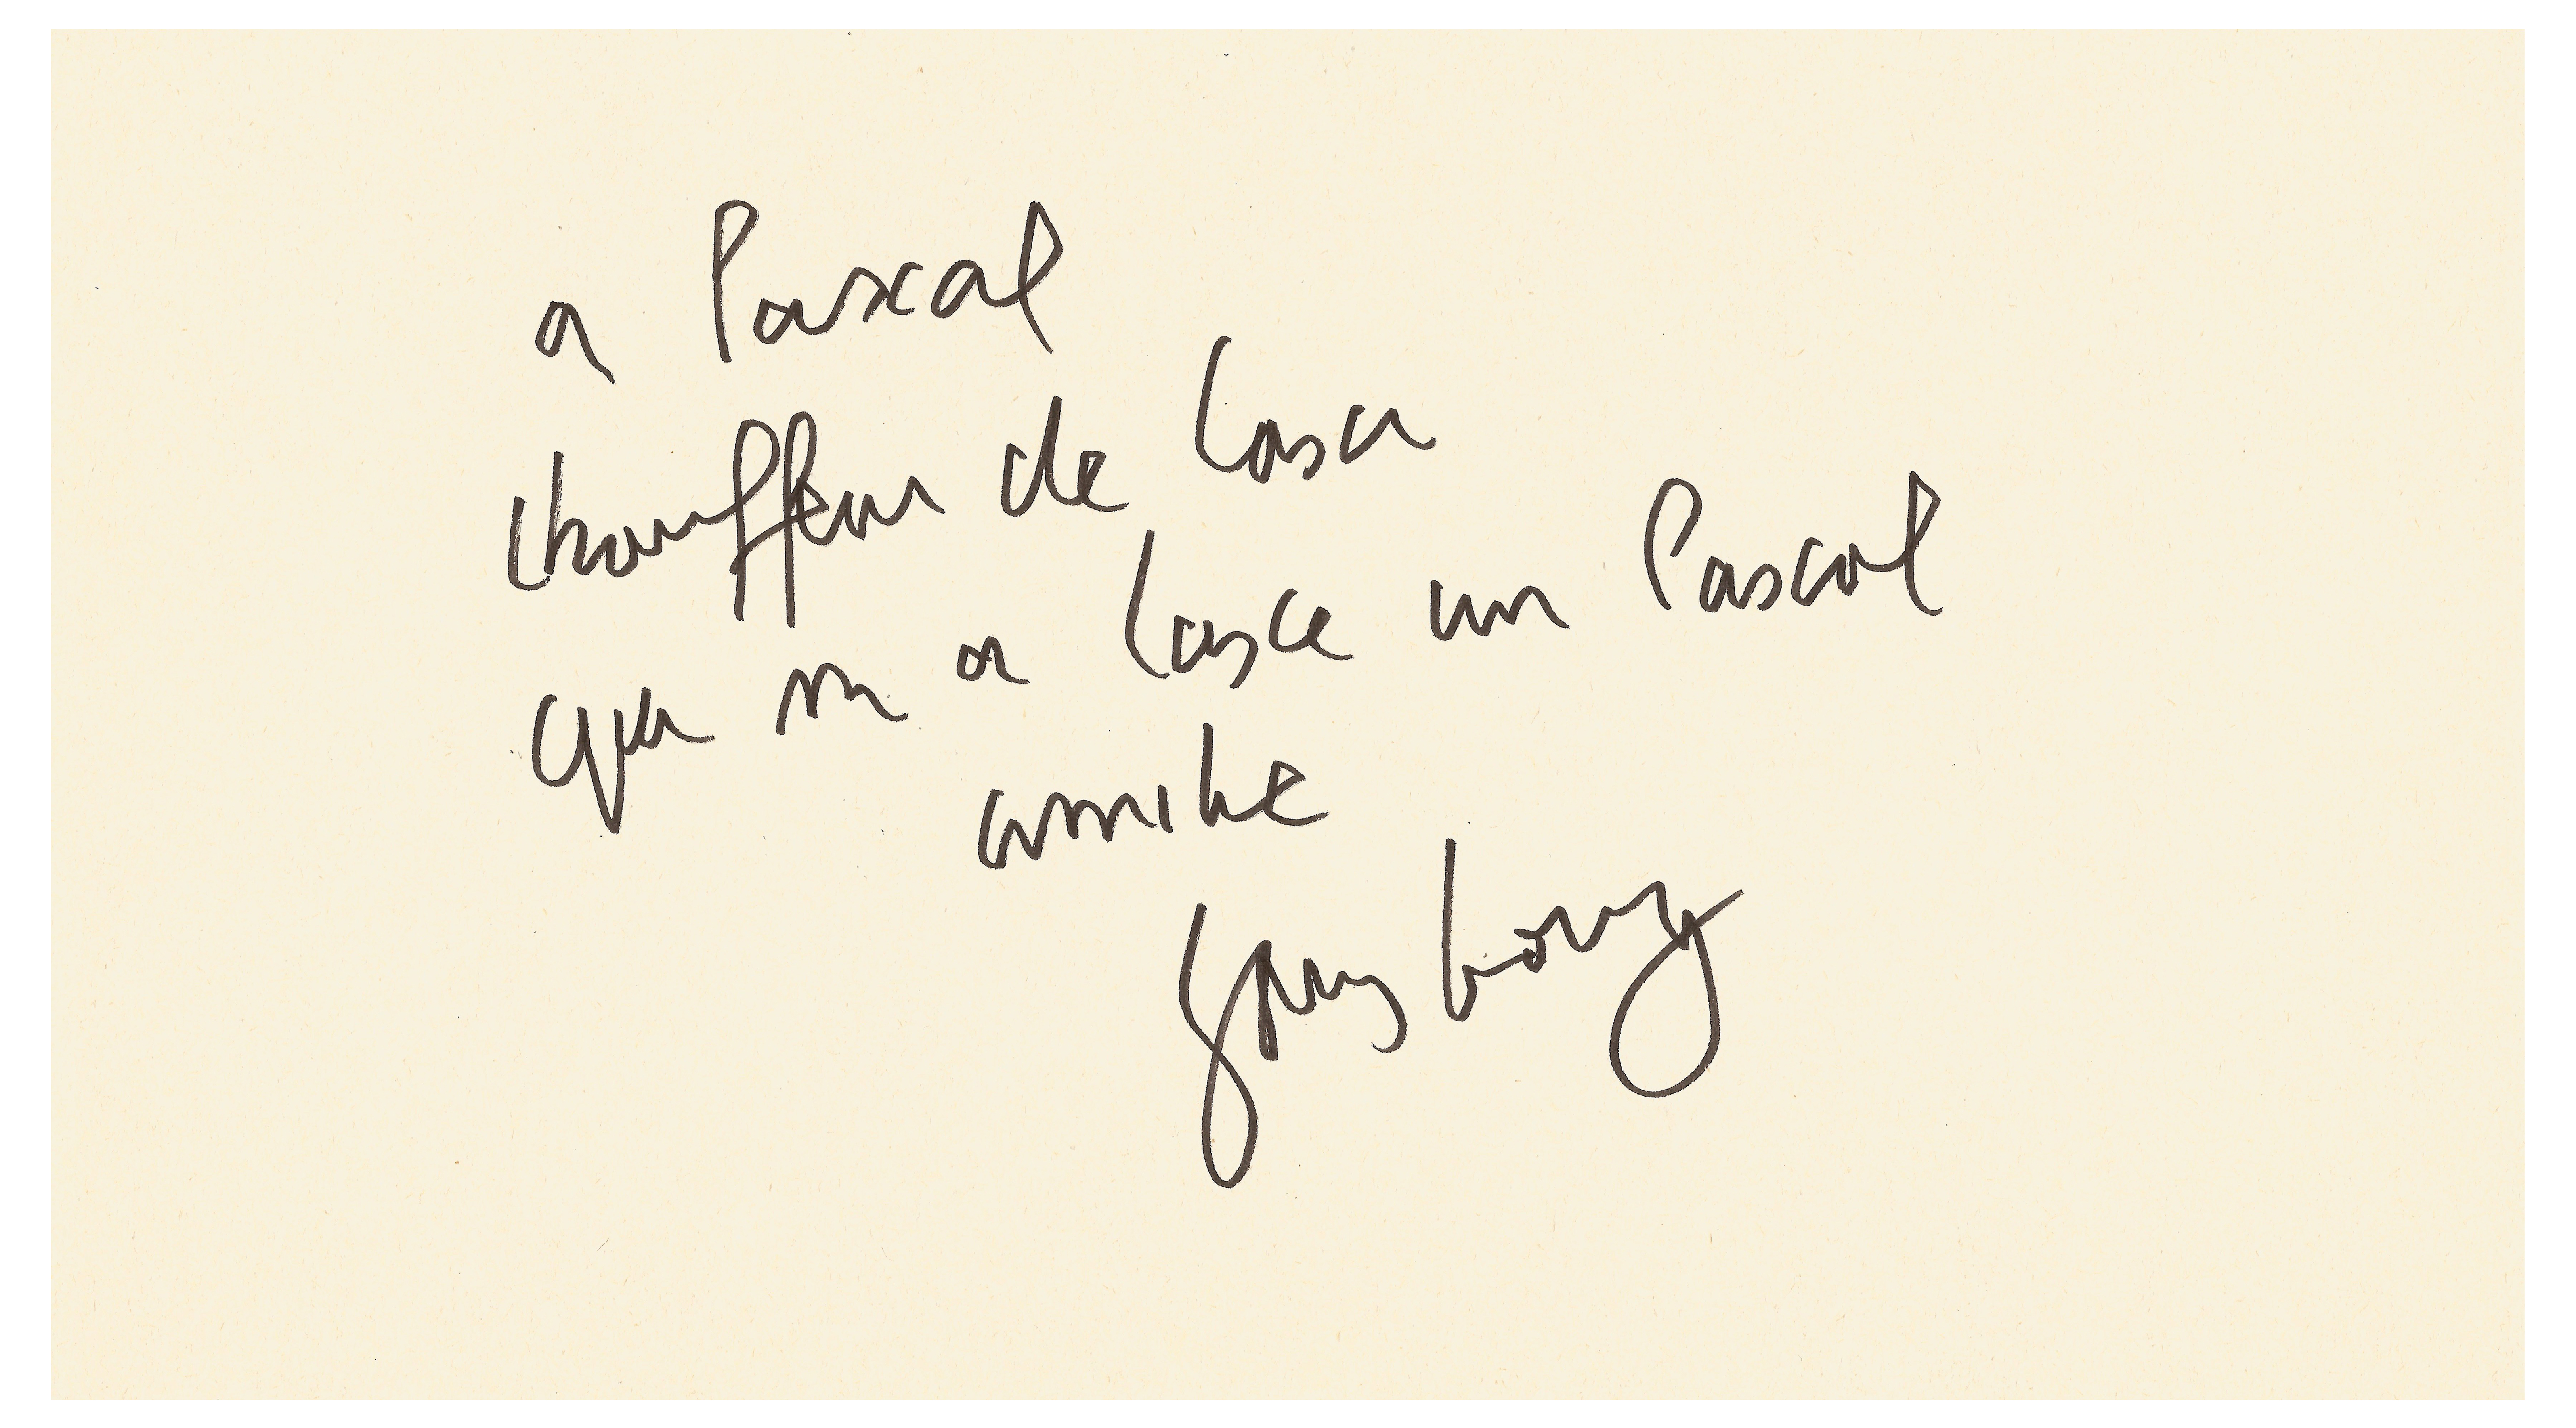 a Pascal
chauffeur de taxi
qui m a taxe un Pascal
amitie
Gainsbourg